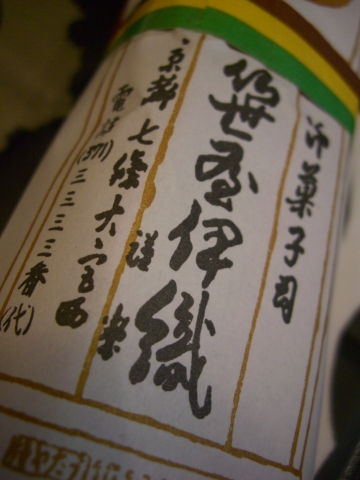 御菓子司
笹屋伊織
謹製
京都七條大宮西
電話(371)三三三三番(代)